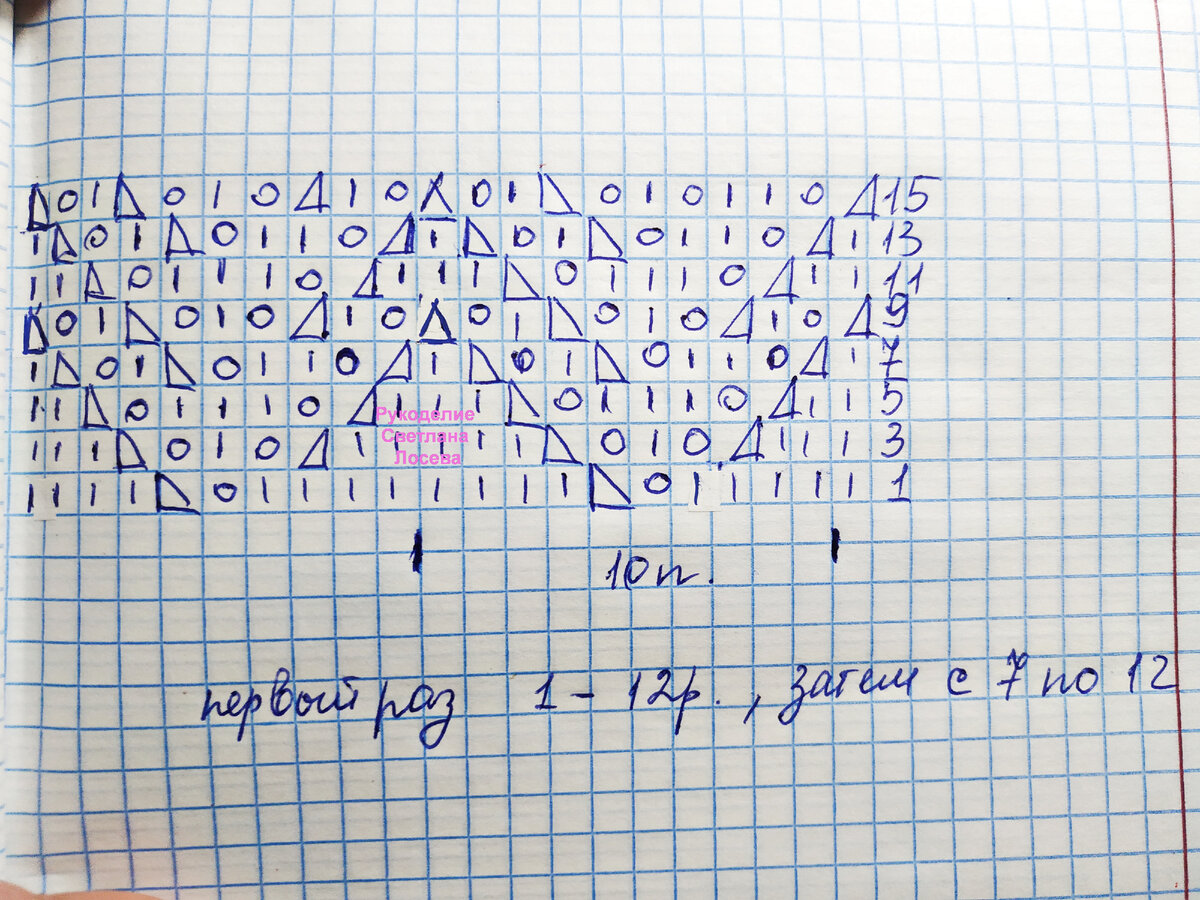 15
13
11
9
7
5
3
1
Рукоделие
Светлана
Лосева
10 п.
первый раз 1 - 12 р., затем с 7 по 12